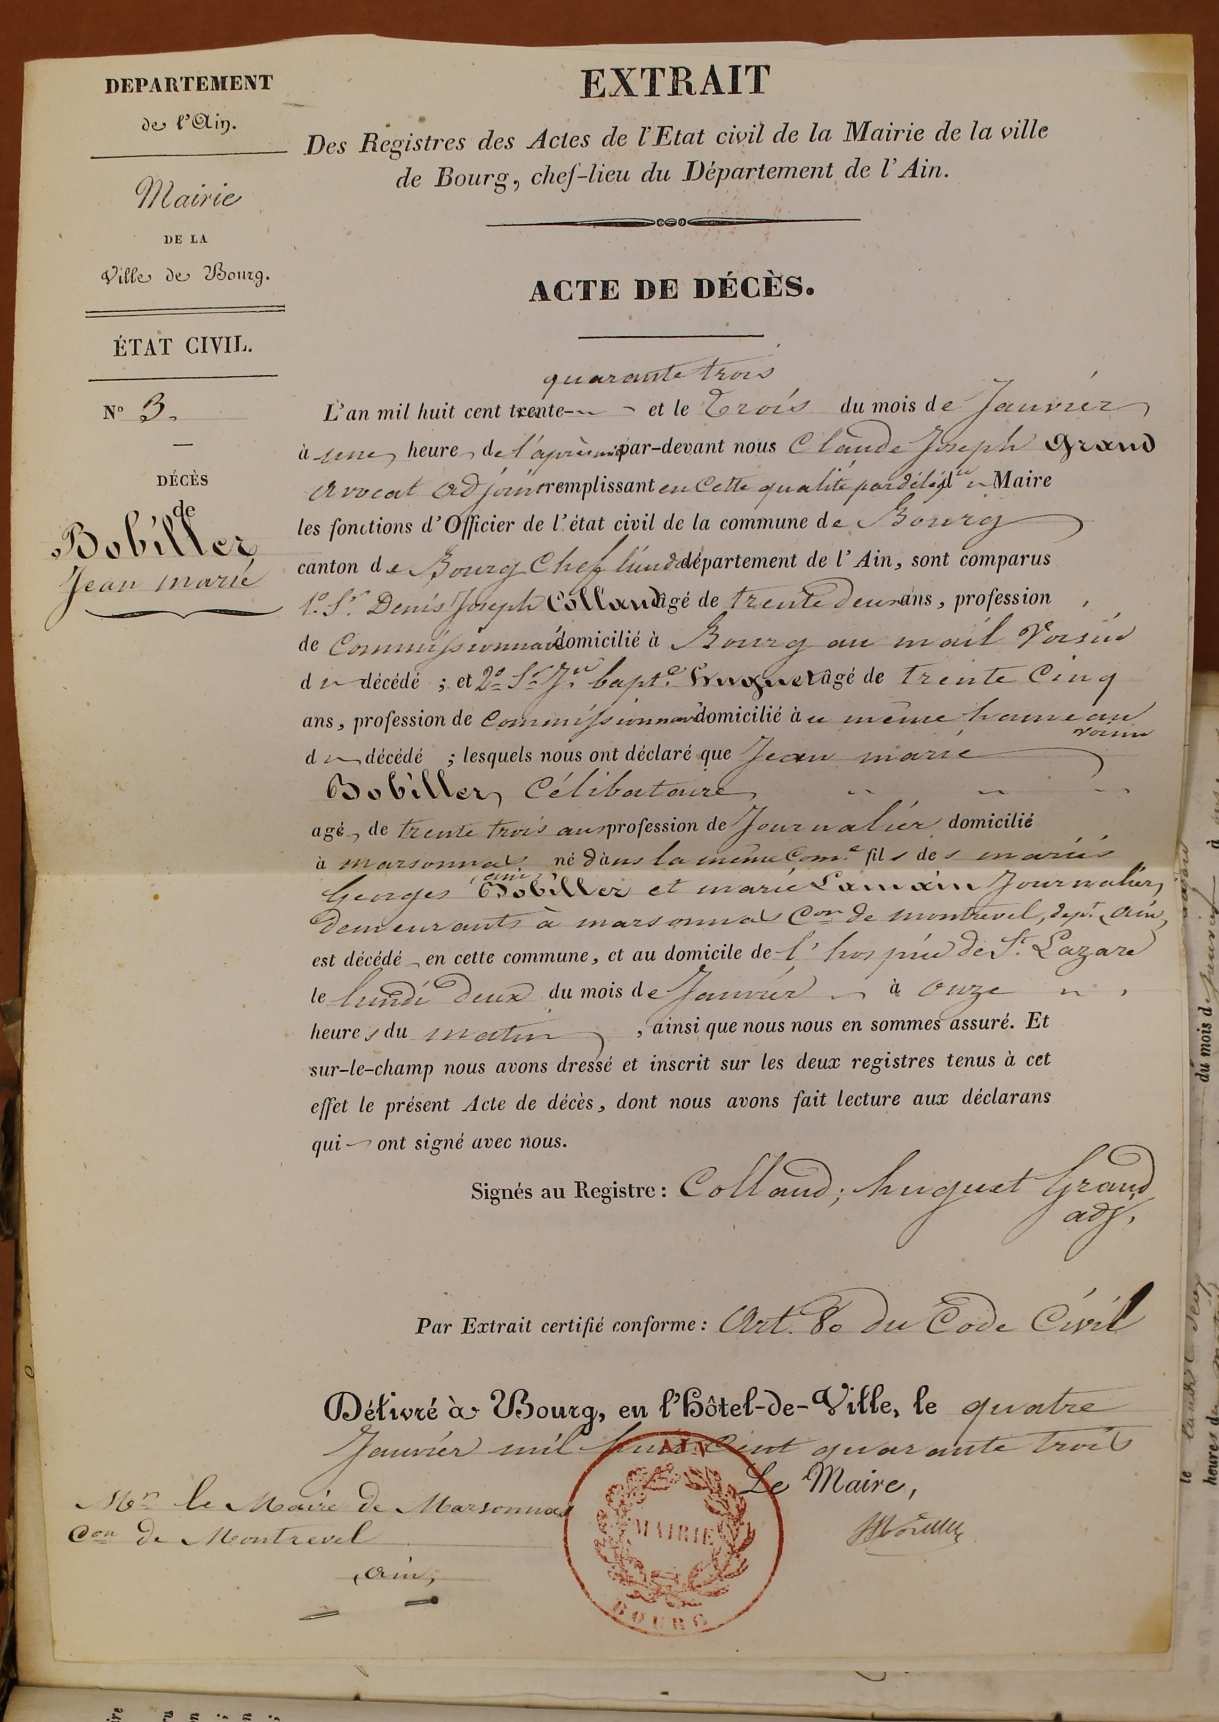 DEPARTEMENT
de l'Ain.
Mairie
DE LA
Ville de Bourg.
ÉTAT CIVIL.
N° 3.
DÉCÈS
de
Bobiller
Jean marie
EXTRAIT
Des Registres des Actes de l'Etat civil de la Mairie de la ville
de Bourg, chef-lieu du Département de l'Ain.
ACTE DE DÉCÈS.
quarante trois
L'an mil huit cent trente- et le Trois du mois de Janvier
à une heure de l'après midi par-devant nous Claude Joseph Grand
avocat adjoint remplissant en cette qualité par délég.on du Maire
les fonctions d'Officier de l'état civil de la commune de Bourg
canton de Bourg Chef lieu du département de l'Ain, sont comparus
1.° Sr. Denis Joseph Colland âgé de trente deux ans, profession
de Commissionnaire domicilié à Bourg au mail Voisin
du décédé ; et 2° Sr. Jn. bapte. huguet âgé de trente Cinq
ans, profession de commissionnaire domicilié à u même hameau
voisin
du décédé ; lesquels nous ont déclaré que Jean marie
Bobiller, Célibataire
agé de trente trois ans profession de Journalier domicilié
à marsonnas né dans la même Com.e fils des mariés
(ain)
Georges Bobiller et marie Lamain Journalier,
Demeurants à marsonnas Con de montrevel, dept. (ain,
est décédé en cette commune, et au domicile de l'hospice de St. Lazare
le lundi deux du mois de Janvier à onze
heures du matin, ainsi que nous nous en sommes assuré. Et
sur-le-champ nous avons dressé et inscrit sur les deux registres tenus à cet
effet le présent Acte de décès, dont nous avons fait lecture aux déclarans
qui ont signé avec nous.
Signés au Registre : Colland; huguet Grand
adj.
Par Extrait certifié conforme : Art. 80 du Code Civil
Délivré à Bourg, en l'Hôtel-de-Ville, le quatre
Janvier mil huit cent quarante trois
Le Maire,
Mr. le Maire de Marsonnas
Con de Montrevel
(ain,
AIN
MAIRIE
BOURG
du mois de Janvier
heures du matin